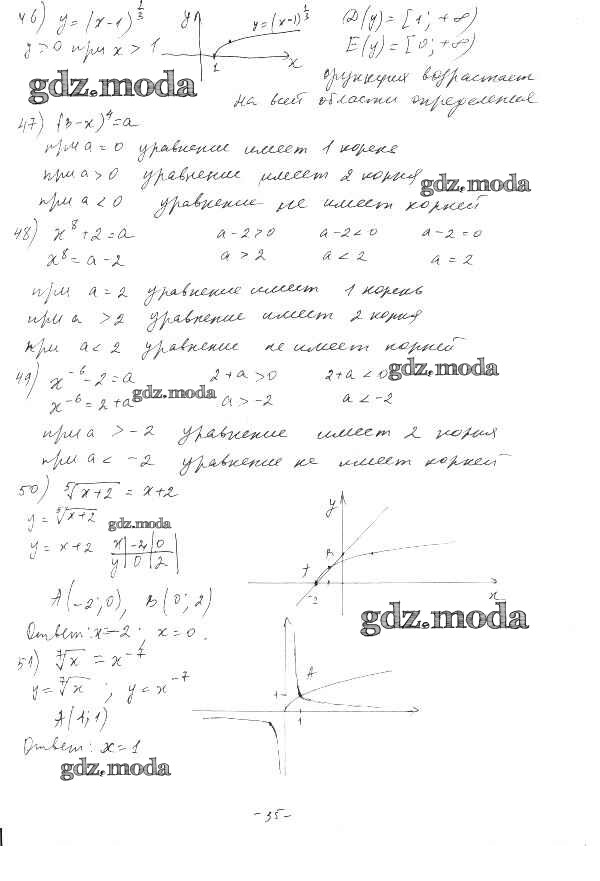 46) y = (x-1)^{1/3}
y
y = (x-1)^{1/3}
1
x
D(y) = [1; +∞)
y > 0 при x > 1
E(y) = [0; +∞)
gdz.moda
функция возрастает
на всей области определения
47) (3-x)^4 = a
при a = 0 уравнение имеет 1 корень
при a > 0 уравнение имеет 2 корня
gdz.moda
при a < 0 уравнение не имеет корней
48) x^8 + 2 = a a-2 > 0 a-2 < 0 a-2 = 0
x^8 = a-2 a > 2 a < 2 a = 2
при a = 2 уравнение имеет 1 корень
при a > 2 уравнение имеет 2 корня
при a < 2 уравнение не имеет корней
gdz.moda
49) x^{-6} - 2 = a 2+a > 0 2+a < 0
gdz.moda
x^{-6} = 2+a a > -2 a < -2
при a > -2 уравнение имеет 2 корня
при a < -2 уравнение не имеет корней
50) \sqrt[5]{x+2} = x+2
y = \sqrt[5]{x+2}
gdz.moda
y = x+2 x | -2 | 0
y | 0 | 2
y
B
A
-2
x
A(-2; 0), B(0; 2)
gdz.moda
Ответ: x=-2; x=0.
51) \sqrt[7]{x} = x^{-7}
y = \sqrt[7]{x} ; y = x^{-7}
A
1
1
A(1; 1)
Ответ: x = 1
gdz.moda
-35-